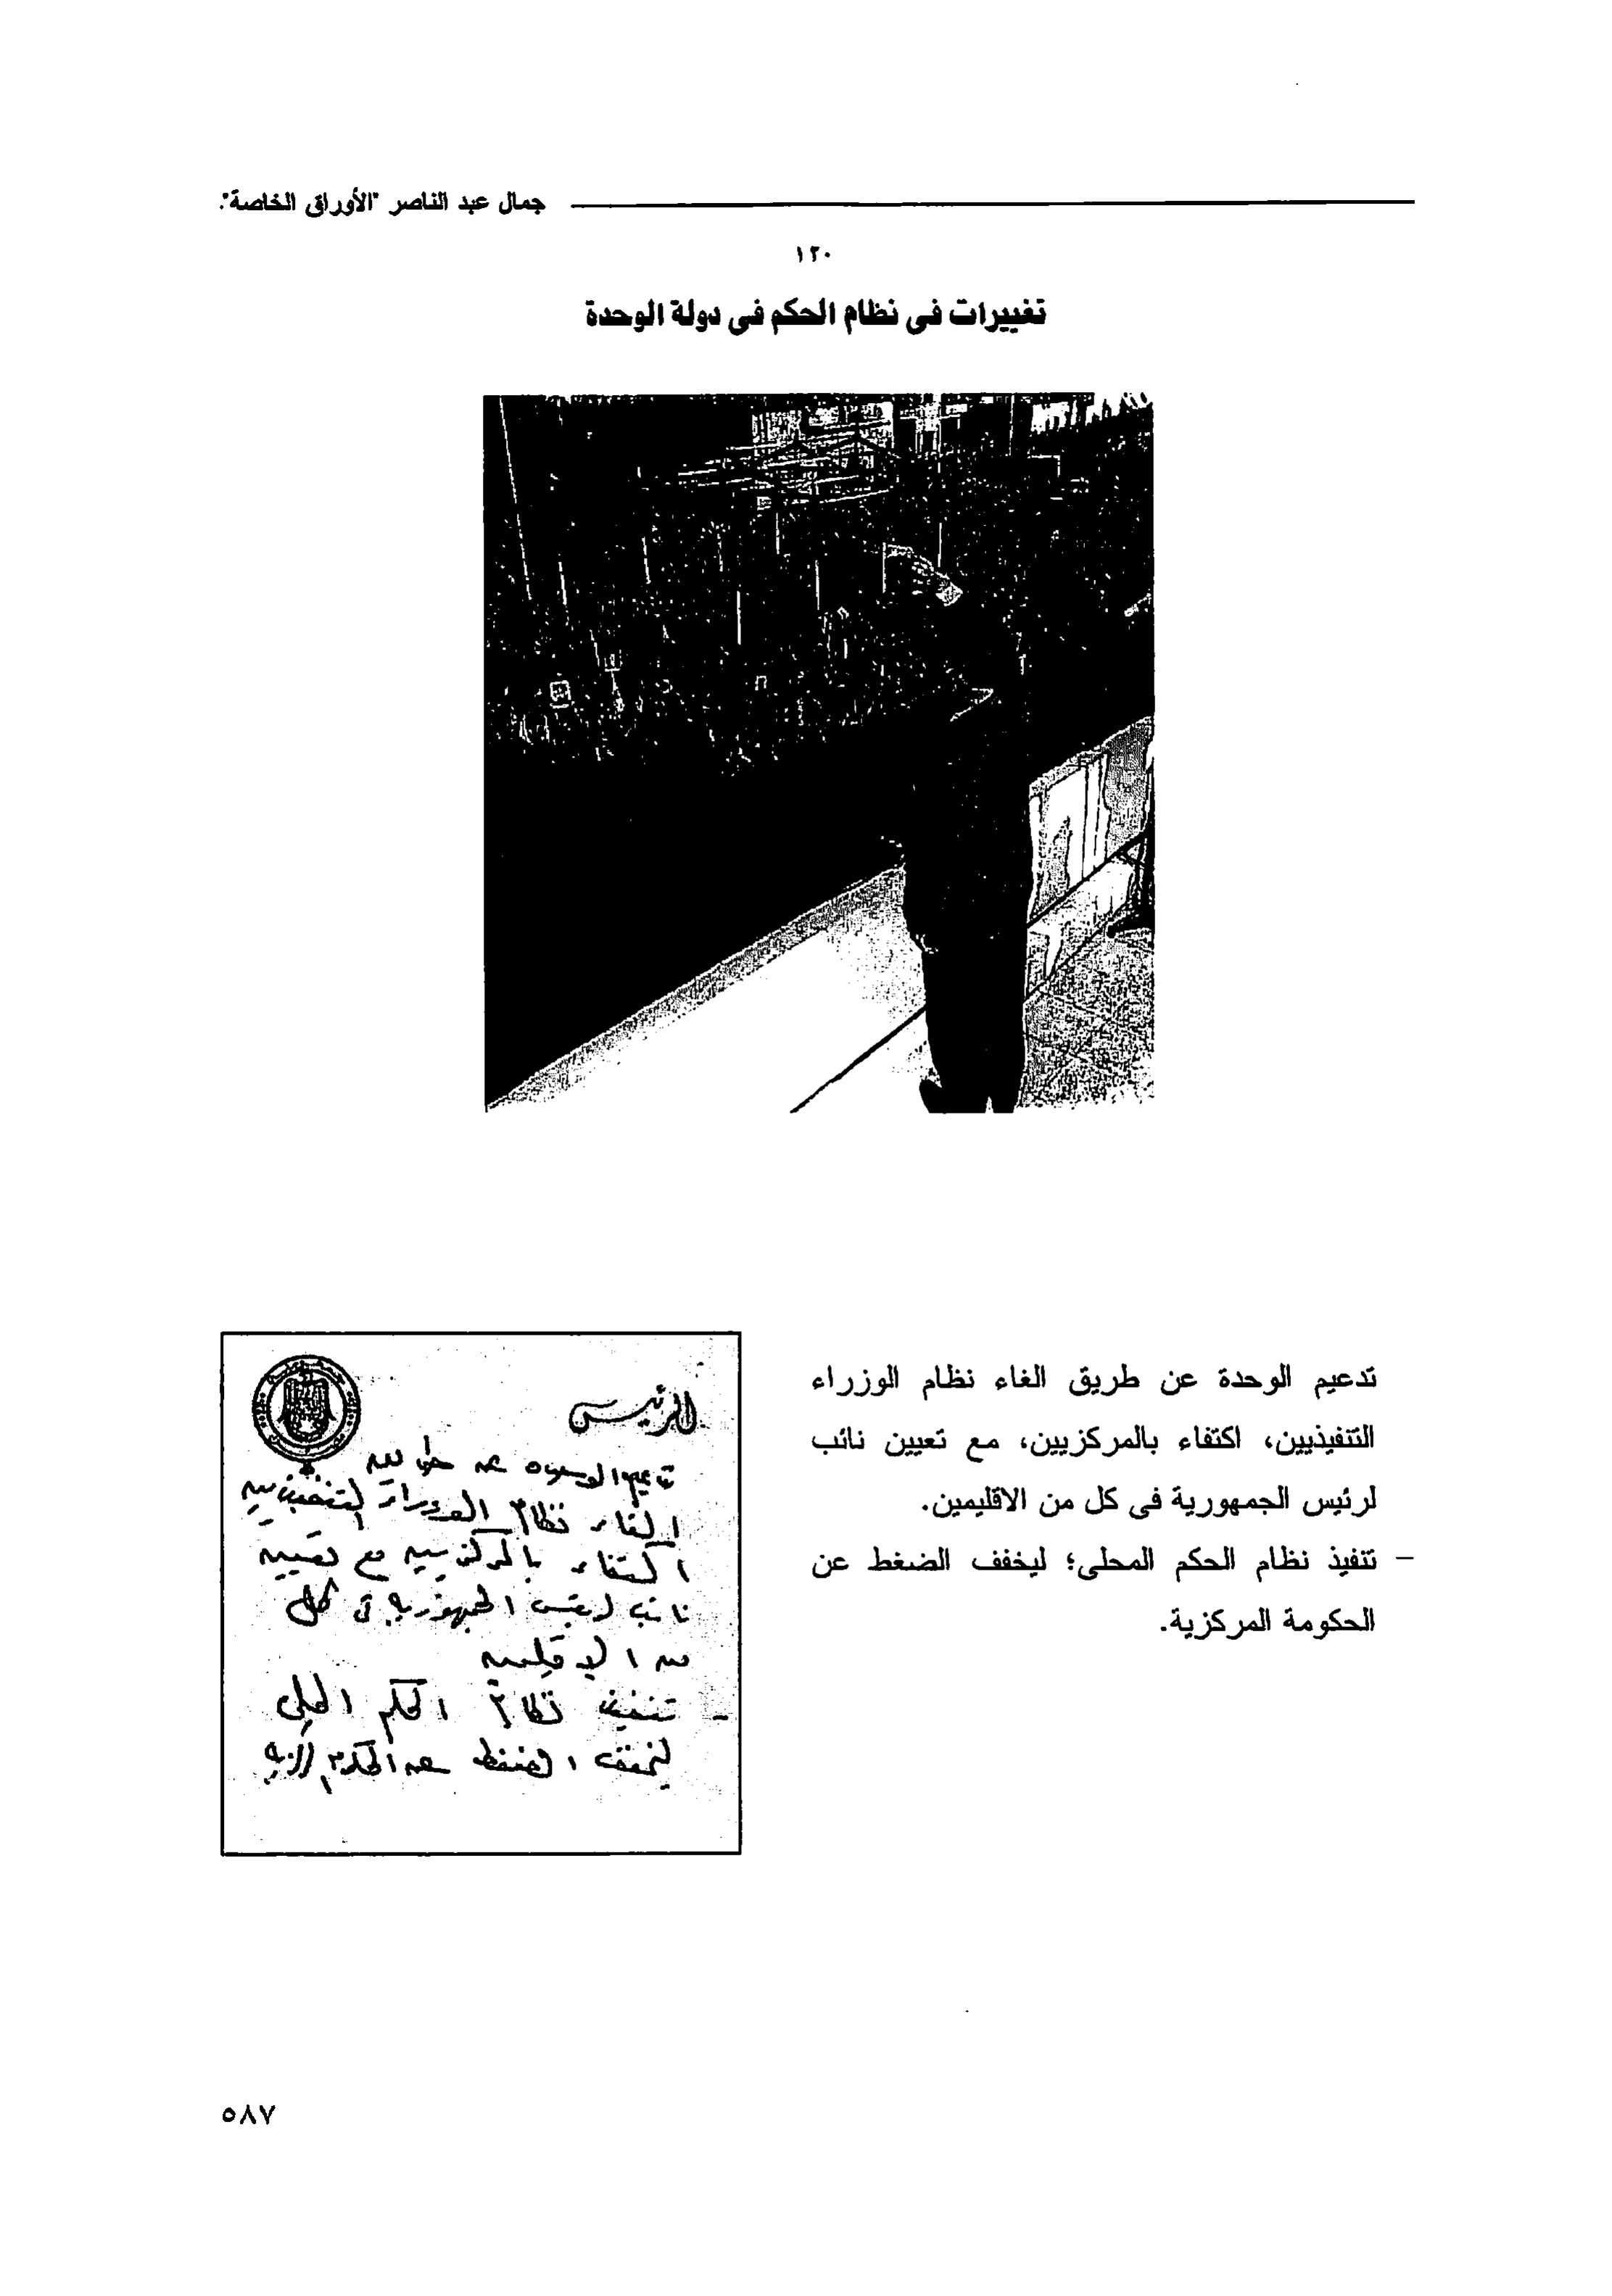 جمال عبد الناصر "الأوراق الخاصة".
١٢٠
تغييرات فى نظام الحكم فى دولة الوحدة
تدعيم الوحدة عن طريق الغاء نظام الوزراء
التنفيذيين، اكتفاء بالمركزيين، مع تعيين نائب
لرئيس الجمهورية فى كل من الاقليمين.
– تنفيذ نظام الحكم المحلى؛ ليخفف الضغط عن
الحكومة المركزية.
الرئيس
تدعيم الوحدة عن طريق
الغاء نظام الوزراء التنفيذيين
اكتفاء بالمركزيين مع تعيين
نائب لرئيس الجمهورية فى كل
من الاقليمين
– تنفيذ نظام الحكم المحلى
ليخفف الضغط عن الحكومة
٥٨٧